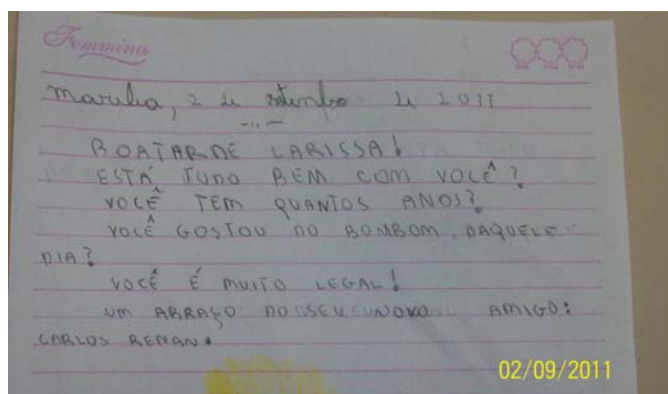 Femmina
Marília, 2 de setembro de 2011
-..-
BOATARDE LARISSA!
ESTÁ TUDO BEM COM VOCÊ?
VOCÊ TEM QUANTOS ANOS?
VOCÊ GOSTOU DO BOMBOM, DAQUELE
DIA?
VOCÊ É MUITO LEGAL!
UM ABRAÇO DO SEU NOVO AMIGO:
CARLOS RENAN.
02/09/2011